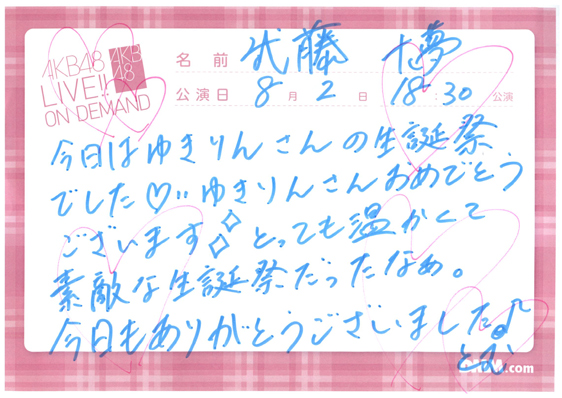 AKB48
LIVE!!
ON DEMAND
AKB
48
名前 武藤 十夢
公演日 8月2日 18:30 公演
今日はゆきりんさんの生誕祭
でした♡!! ゆきりんさんおめでとう
ございます✧ とっても温かくて
素敵な生誕祭だったなぁ。
今日もありがとうございました♪
とむ
.com